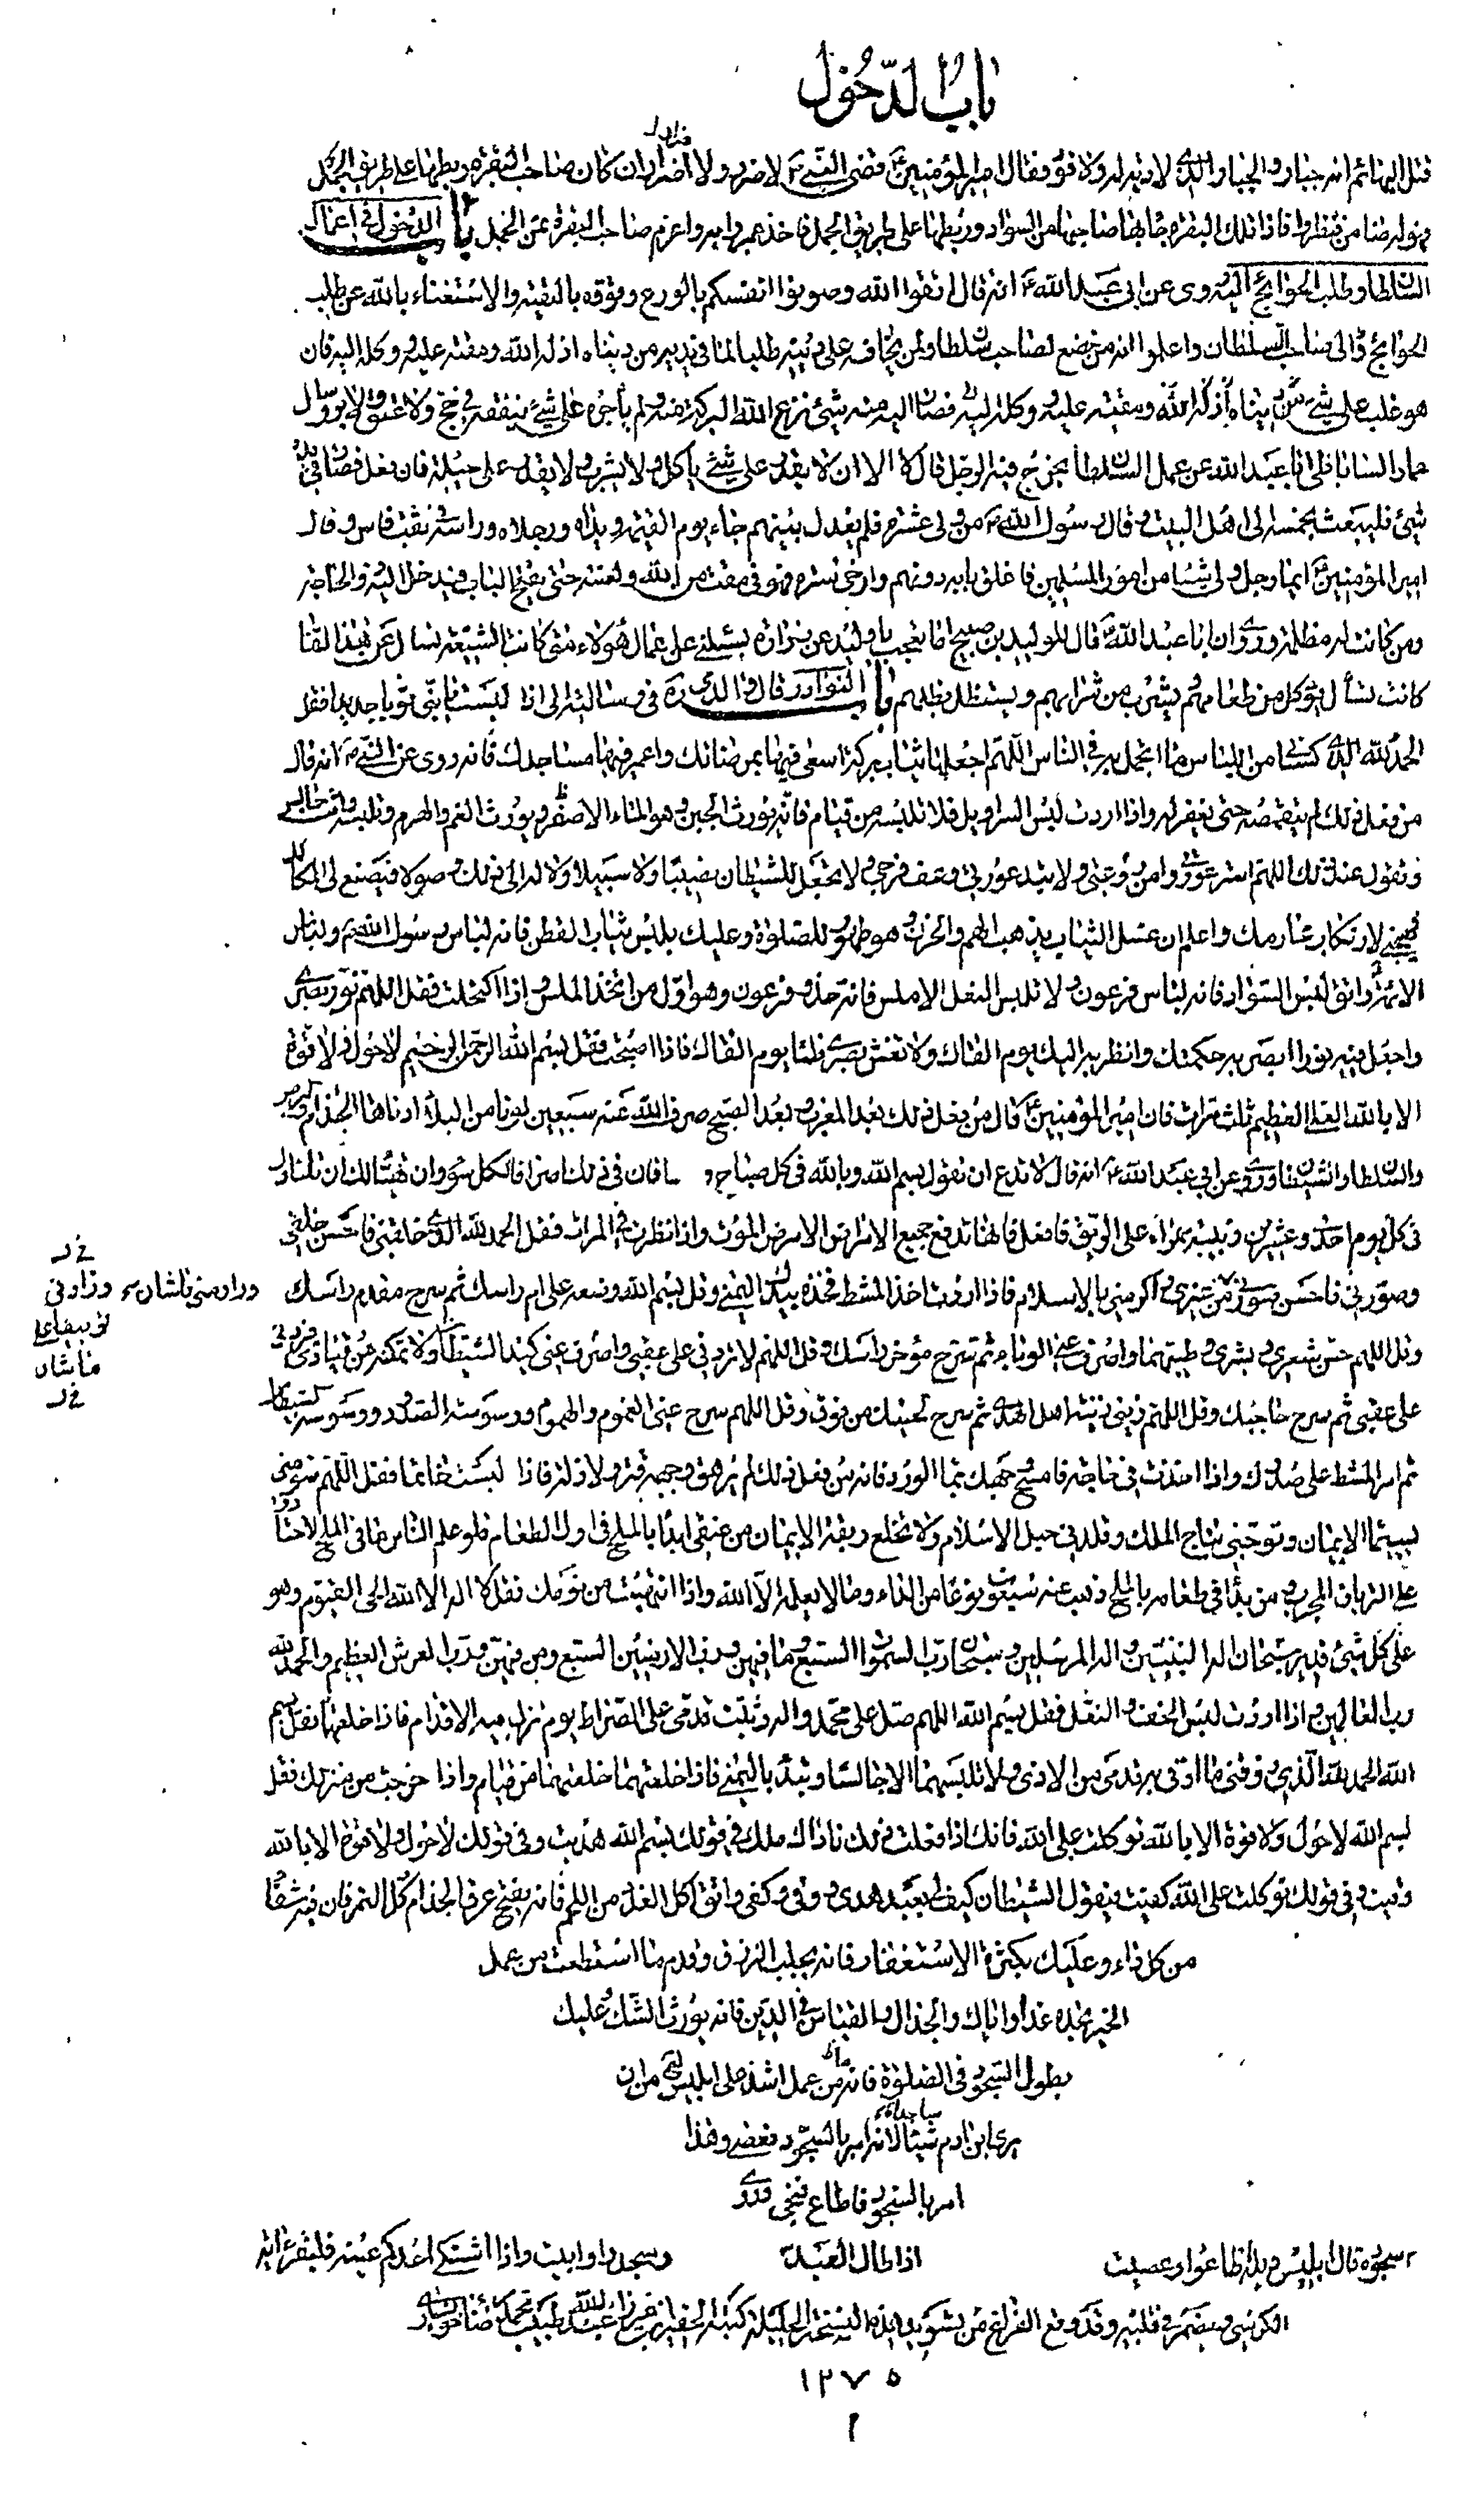 باب الدخول
قتل البهائم انه جبار والجبار الذى لا دية له ولا قود فقال امير المؤمنين قضى النبى لا ضرر ولا اضرار ان كان صاحب البقرة ربطها على طريق الجمل
فهو له ضامن فنظروا فاذا تلك البقرة جاء بها صاحبها من السواد وربطها على طريق الجمل فاخذ عمر برايه واغرم صاحب البقرة ثمن الجمل باب الدخول فى اعمال
السلطان وطلب الحوائج اليه روى عن ابى عبد الله انه قال اتقوا الله وصونوا انفسكم بالورع وقوة بالتقية والاستغناء بالله عن طلب
الحوائج الى صاحب السلطان واعلموا انه من خضع لصاحب سلطان ولمن يخافه على دينه طلبا لما فى يديه من دنياه اذله الله ومقته عليه ووكله اليه فان
هو غلب على شئ من دنياه اذله الله ومقته عليه ووكله اليه فصار اليه منه شئ نزع الله البركة منه ولم ياجره على شئ ينفقه فى حج ولا عتق ولا بر وسال
عمار الساباطى ابا عبد الله عن عمل السلطان يخرج فيه الرجل قال لا الا ان لا يقدر على شئ ياكل ولا يشرب ولا يقدر على حيلة فان فعل فصار فى يده
شئ فليبعث بخمسه الى اهل البيت وقال رسول الله من ولى عشرة فلم يعدل بينهم جاء يوم القيمة ويداه ورجلاه وراسه فى ثقب فاس وقال
امير المؤمنين ايما رجل ولى شيئا من امور المسلمين فاغلق بابه دونهم وارخى ستره فهو فى مقت من الله ولعنته حتى يفتح الباب فيدخل اليه ذو الحاجة
ومن كانت له مظلمة وروى ان ابا عبد الله قال للوليد بن صبيح اما تعجب يا وليد من زرارة يسئلنى عن اعمال هؤلاء متى كانت الشيعة تسال عن هذا انما
كانت تسأل يؤكل من طعامهم يشرب من شرابهم ويستظل بظلهم باب النوادر قال والدى ره فى رسالته الى اذا لبست يا بنى ثوبا جديدا فقل
الحمد لله الذى كسانى من اللباس ما اتجمل به فى الناس اللهم اجعلها ثياب بركة اسعى فيها بمرضاتك واعمر فيها مساجدك فانه روى عن النبى انه قال
من فعل ذلك لم يتقمصه حتى يغفر له واذا اردت لبس السراويل فلا تلبسه من قيام فانه يورث الجبن وهو الماء الاصفر ويورث الغم والهرم وتلبسه وانت جالس
وتقول عند ذلك اللهم استر عورتى وامن روعتى ولا تبد عورتى وعف فرجى ولا تجعل للشيطان نصيبا ولا سبيلا ولا له الى ذلك وصولا فيصنع لى المكائد
فيهيجنى لارتكاب محارمك واعلم ان غسل الثياب يذهب الهم والحزن وهو طهور للصلوة وعليك بلبس ثياب القطن فانه لباس رسول الله ولباس
الائمة واتق لبس السواد فانه لباس فرعون ولا تلبس النعل الاملس فانه حذو فرعون وهو اول من اتخذ الملس واذا اكتحلت فقل اللهم نور بصرى
واجعل فيه نورا ابصر به حكمتك وانظر به اليك يوم القاك ولا تغش بصرى ظلماء يوم القاك فاذا اصبحت فقل بسم الله الرحمن الرحيم لا حول ولا قوة
الا بالله العلى العظيم ثلث مرات فان امير المؤمنين قال من فعل ذلك بعد المغرب وبعد الصبح صرف الله عنه سبعين لونا من البلاء ادناها الجذام والبرص
والسلطان والشيطان وروى عن ابى عبد الله انه قال لا تدع ان تقول بسم الله وبالله فى كل صباح و مسا فان فى ذلك صرفا لكل سوء وان تهيا لك ان تتناول
فى كل يوم احدى وعشرين زبيبة حمراء على الريق فافعل فانها تدفع جميع الامراض الا مرض الموت واذا نظرت فى المراة فقل الحمد لله الذى خلقنى فاحسن خلقى
وصورنى فاحسن صورتى وزان منى ما شان من غيرى واكرمنى بالاسلام فاذا اردت اخذ المشط فخذه بيدك اليمنى وقل بسم الله وضعه على ام راسك ثم سرح مقدم راسك
وقل اللهم حسن شعرى وبشرى وطيبهما واصرف عنى الوباء ثم تسرح مؤخر راسك وقل اللهم لا تردنى على عقبى واصرف عنى كيد الشيطان ولا تمكنه من قيادى فتردنى
على عقبى ثم سرح حاجبك وقل اللهم زينى زينة اهل الهدى ثم سرح لحيتك من فوق وقل اللهم سرح عنى الغموم والهموم ووسوسة الصدور ووسوسة الشيطان
ثم امر المشط على صدرك واذا اخذت فى حاجة فامسح وجهك بماء الورد فانه من فعل ذلك لم يرهق وجهه قتر ولا ذلة فاذا لبست خاتما فقل اللهم سومنى
بسيماء الايمان وتوجنى بتاج الملك وقلدنى حبل الاسلام ولا تخلع ربقة الايمان من عنقى ابدا بالملح فى اول الطعام فلو علم الناس ما فى الملح لاختاروا
على الترياق المجرب ومن بدأ فى طعامه بالملح ذهب عنه سبعون نوعا من الداء وما لا يعلمه الا الله واذا انتهيت من نومك فقل لا اله الا الله الحى القيوم وهو
على كل شئ قدير سبحان اله النبيين واله المرسلين وسبحان رب السموات السبع وما فيهن ورب الارضين السبع ومن فيهن ورب العرش العظيم والحمد لله
رب العالمين واذا اردت لبس الخف والنعل فقل بسم الله اللهم صل على محمد واله وثبت قدمى على الصراط يوم تزل فيه الاقدام فاذا خلعتها فقل بسم
الله الحمد لله الذى رزقنى ما اوقى به قدمى من الاذى ولا تلبسهما الا جالسا وتبدأ باليمنى فاذا خلعتهما خلعتهما من قيام واذا خرجت من منزلك فقل
بسم الله لا حول ولا قوة الا بالله توكلت على الله فانك اذا فعلت ذلك ناداك ملك فى قولك بسم الله هديت وفى قولك لا حول ولا قوة الا بالله
وقيت وفى قولك توكلت على الله كفيت فيقول الشيطان كيف لى بعبد هدى ووقى وكفى واتق اكل الغدد من اللحم فانه يفتح عرق الجذام وكل التمر فان فيه شفاء
من كل داء وعليك بكثرة الاستغفار فانه يجلب الرزق وقدم ما استطعت من عمل
الخير تجده غدا واياك والجدال والقياس فى الدين فانه يورث الشك وعليك
بطول السجود فى الصلوة فانه ما من عمل اشد على ابليس من ان
يرى ابن ادم ساجدا لانه امر بالسجود فعصى وهذا
امر بالسجود فاطاع فنجى وروى
اذا طال العبد
سجوده قال ابليس ويله اطاعوا وعصيت
وسجدوا وابيت واذا اشتكى احدكم عينه فليقرء اية
الكرسى ويضمر فى قلبه وقد وقع الفراغ من تسويد هذه النسخة الجليلة
۱۲۷۵